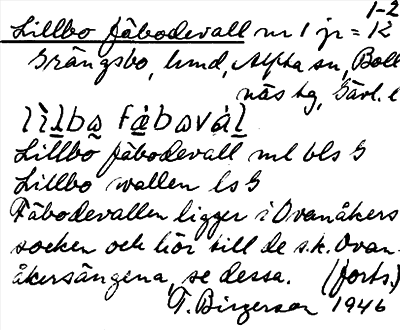 1-2
Lillbo fäbodevall nr 1 jr = K
Grängsbo, hmd, Alfta sn, Boll
näs tg, Gävl. l
Lillbo fäbodevall ml bls G
Lillbo wallen ls G
Fäbodevallen ligger i Ovanåkers
socken och hör till de s.k. Ovan-
åkersängena, se dessa. (forts.)
T. Birgerson 1946